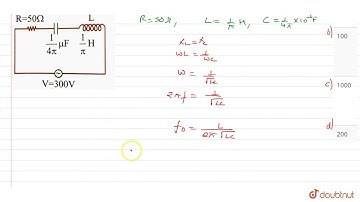 R=50Ω
L
1/4π μF
1/π H
V=300V
R=50Ω, L=1/π H, C=1/4π ×10⁻⁶F
X_L=X_C
WL=1/WC
W=1/√LC
2πf=1/√LC
f₀=1/2π√LC
b)
100
c)
1000
d)
200
doubtnut